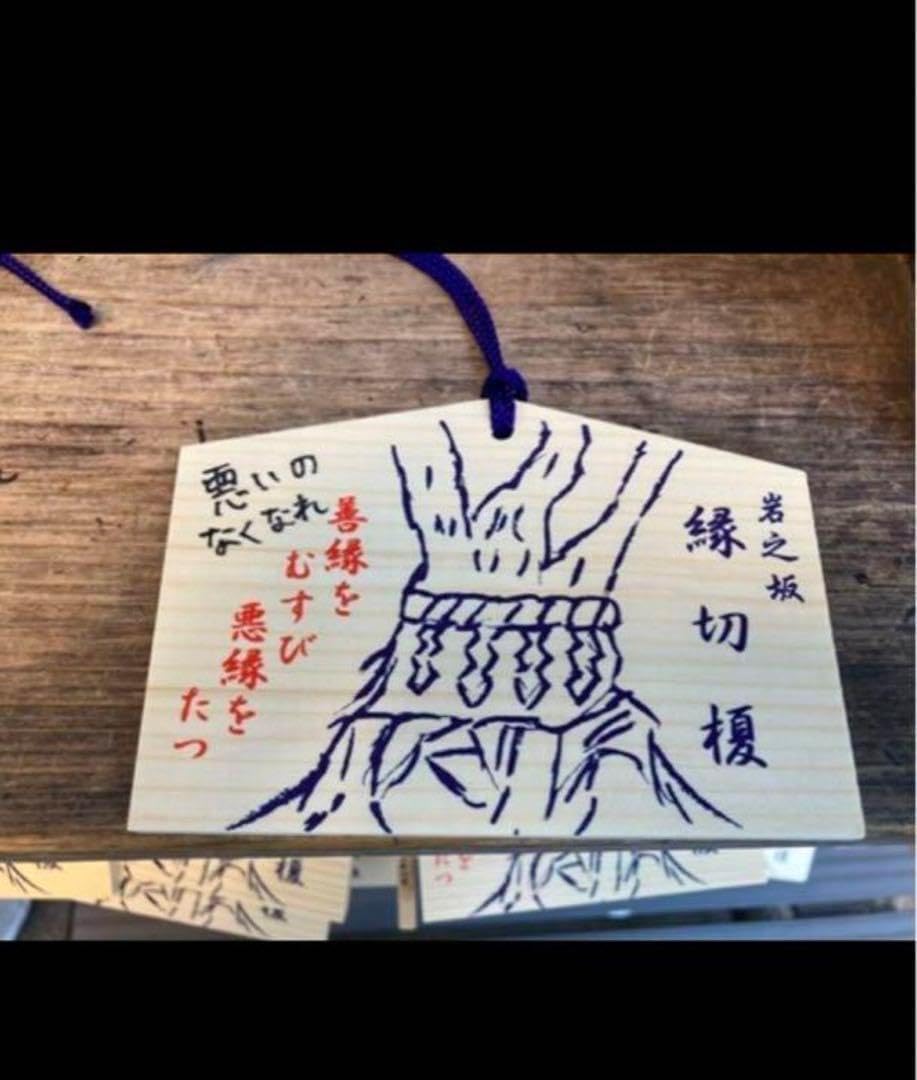 岩之坂
縁切榎
善縁を
むすび
悪縁を
たつ
悪いの
なくなれ
榎